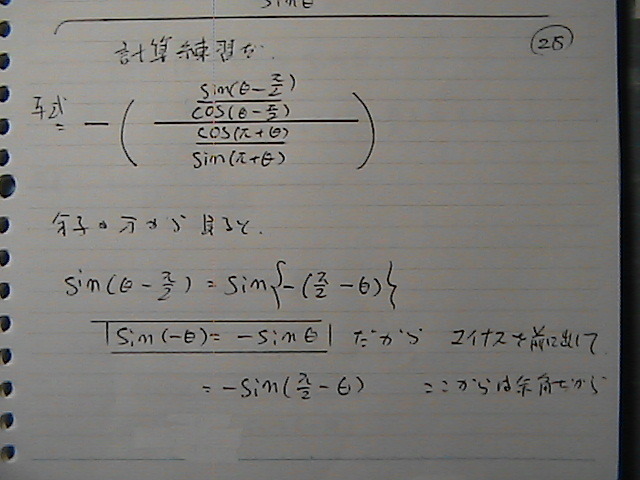 sinθ
計算練習だ. 25
与式 = -(sin(θ-π/2)/cos(θ-π/2) / cos(π+θ)/sin(π+θ))
分子の方から見ると.
sin(θ-π/2) = sin{-(π/2-θ)}
sin(-θ)= -sinθ だから マイナスを前に出して
= -sin(π/2-θ) ここからは余角だから